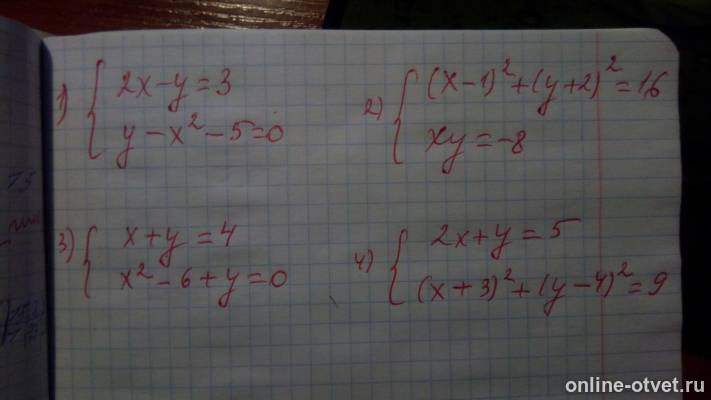 1) { 2x-y=3
y-x²-5=0
2) { (x-1)²+(y+2)²=16
xy=-8
3) { x+y=4
x²-6+y=0
4) { 2x+y=5
(x+3)²+(y-4)²=9
online-otvet.ru